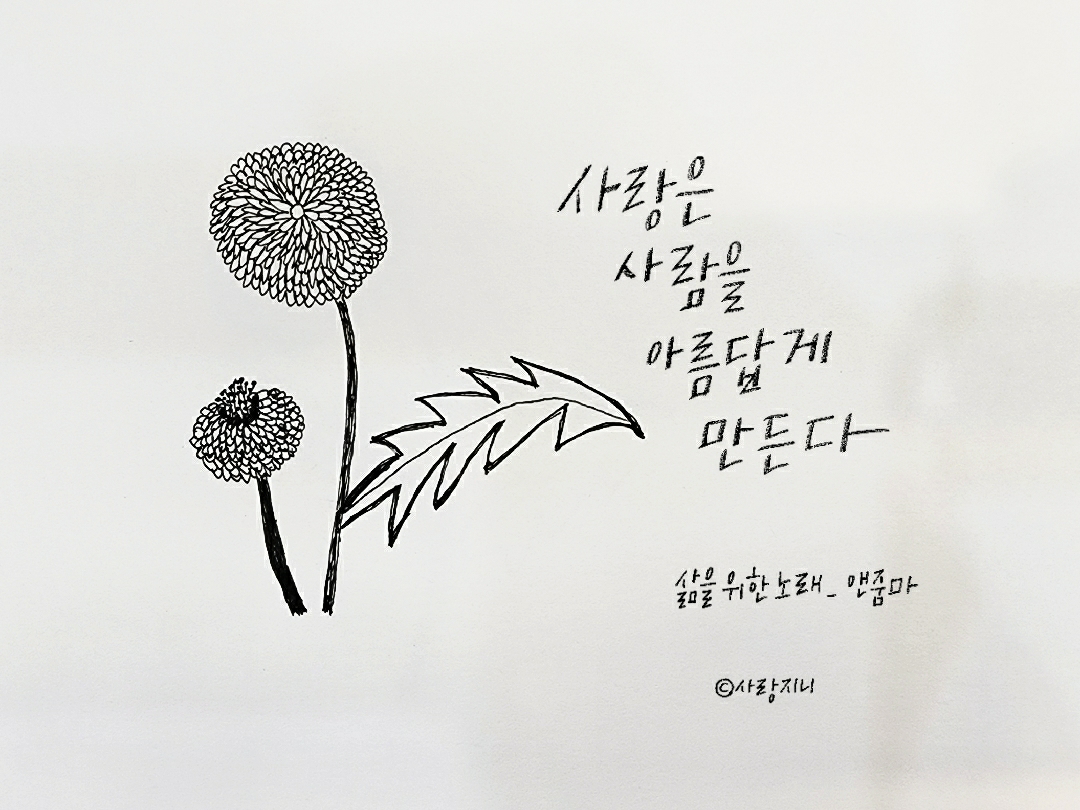 사랑은
사람을
아름답게
만든다
삶을 위한 노래_ 앤줌마
©사랑지니